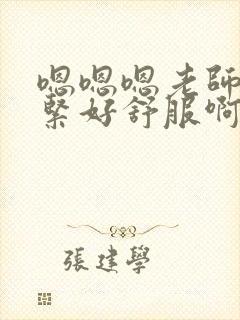 嗯嗯嗯老師
緊好舒服啊
張建學